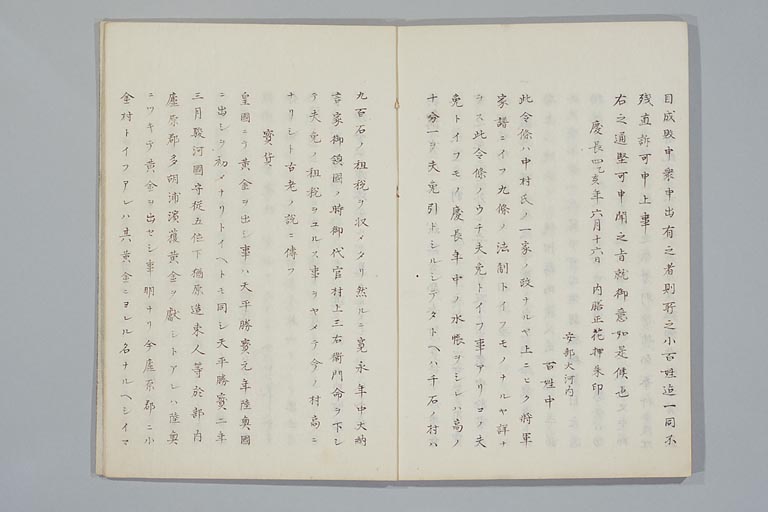 目成敗申衆申出有之者則所之小百姓迄一同不
残直訴可申上事
右之通堅可申聞之旨就御意如是候也
慶長四己亥年六月十六日　内膳正花押朱印
安部大河内
百姓中
此令條ハ中村氏ノ一家ノ政ナルヤ上ニヒク将軍
家譜ニイフ九條ノ法制トイフモノナルヤ詳ナ
ラス此令條ノウチ夫免トイフ事アリコノ夫
免トイフモノ慶長年中ノ水帳ヲシレハ高ノ
十分一ヲ夫免引トシルシアタトヘハ千石ノ村ハ
九百石ノ租税ヲ収メタリ然ルニ寛永年中大納
言家御領國ノ時御代官村上三右衛門命ヲ下シ
テ夫免ノ租税ヲユルス事ヲヤメテ今ノ村高ニ
ナリシト古老ノ説ニ傳フ
寳貨
皇國ニテ黄金ヲ出シ事ハ天平勝寳元年陸奥國
ニ出シヲ初メナリトイヘトモ同シ天平勝寳二年
三月駿河國守従五位下楢原造東人等於部内
廬原郡多胡浦濱獲黄金ヲ獻シトアレハ陸奥
ニツキテ黄金ヲ出セシ事明ナリ今廬原郡ニ小
金村トイフアレハ其黄金ニヨレル名ナルヘシイマ